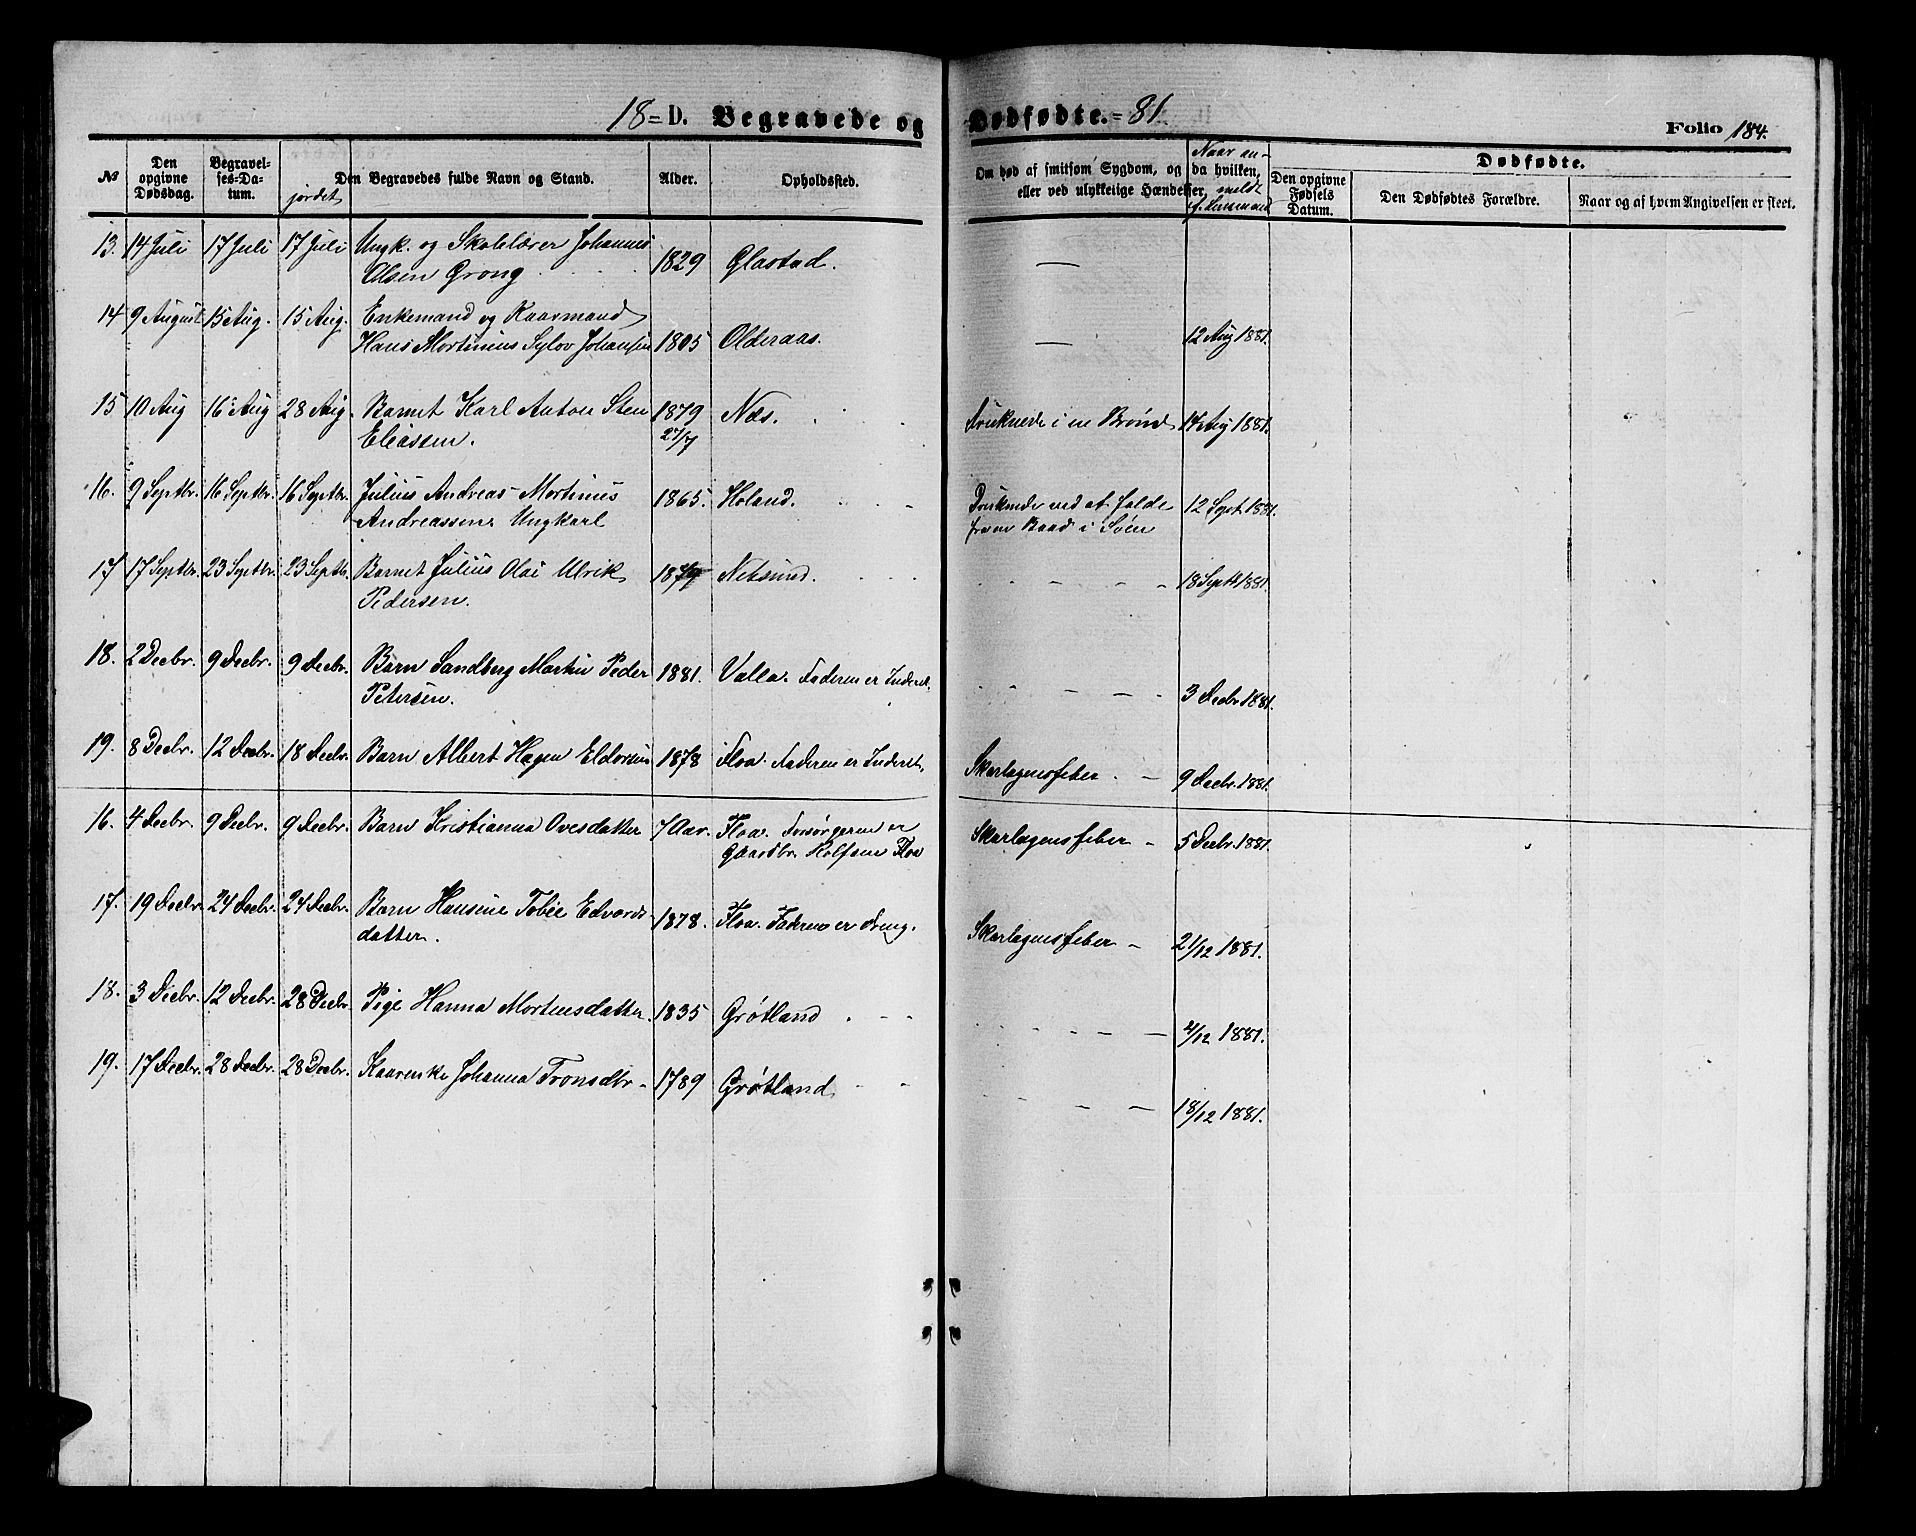 18 = D. Begravede og Dødfødte. = 81.
Folio 184.
No
Den opgivne Dødsdag.
Begravelses-Datum.
jordet
Den Begravedes fulde Navn og Stand.
Alder.
Opholdssted.
Om død af smitsom Sygdom, og da hvilken,
eller ved ulykkelige Hændelser,
Naar anmeldt f. Lensmand
Dødfødte.
Den opgivne Fødsels Datum.
Den Dødfødtes Forældre.
Naar og af hvem Angivelsen er skeet.
13. 14 Juli 17 Juli 17 Juli Ungk. og Skolelærer Johannes
Olsen Grong 1829 Glastad. —
14 9 August 15 Aug. 15 Aug. Enkemand og Kaarmand
Hans Mortinius Sylov Johansen 1805 Olderaas. — 12 Aug 1881.
15 10 Aug 16 Aug 28 Aug. Barnet Karl Anton Sten 1879 Næs. Druknede i en Brønd 14 Aug 1881.
Eliassen. 27/7
16. 9 Septbr. 16 Septbr. 16 Septbr. Julius Andreas Mortinus 1865. Høland. Druknede ved at falde 12 Sept. 1881.
Andreassen Ungkarl fra en Baad i Søen
17 17 Septbr. 23 Septbr. 23 Septbr. Barnet Julius Olai Ulrik 1879 18 Septb 1881.
Pedersen.
18. 2 Decbr. 9 Decbr. 9 Decbr. Barn Sandberg Martin Peder 1881. Valla. Faderen er Inderst.
Petersen. 3 Decbr 1881.
19. 8 Decbr. 12 Decbr. 18 Decbr. Barn Albert Hagen Eldorsen 1878 Floa. Faderen er Inderst, Skarlagensfeber — 9 Decbr. 1881.
16. 4 Decbr. 9 Decbr. 9 Decbr. Barn Kristianna Ovesdatter 7 Aar. Floa. Forsørgeren er Skarlagensfeber — 5 Decbr. 1881.
Gaardbr. Rolfsen Floa
17. 19 Decbr. 24 Decbr. 24 Decbr. Barn Hansine Tobie Edvards-
datter. 1878. Floa. Faderen er Dreng. Skarlagensfeber — 21/12 1881.
18. 3 Decbr. 12 Decbr. 28 Decbr. Pige Hanna Mortensdatter. 1835 Grøtland 4/12 1881.
19. 17 Decbr. 28 Decbr. 28 Decbr. Kaarenke Johanna Tronsdtr 1789 Grøtland 18/12 1881.